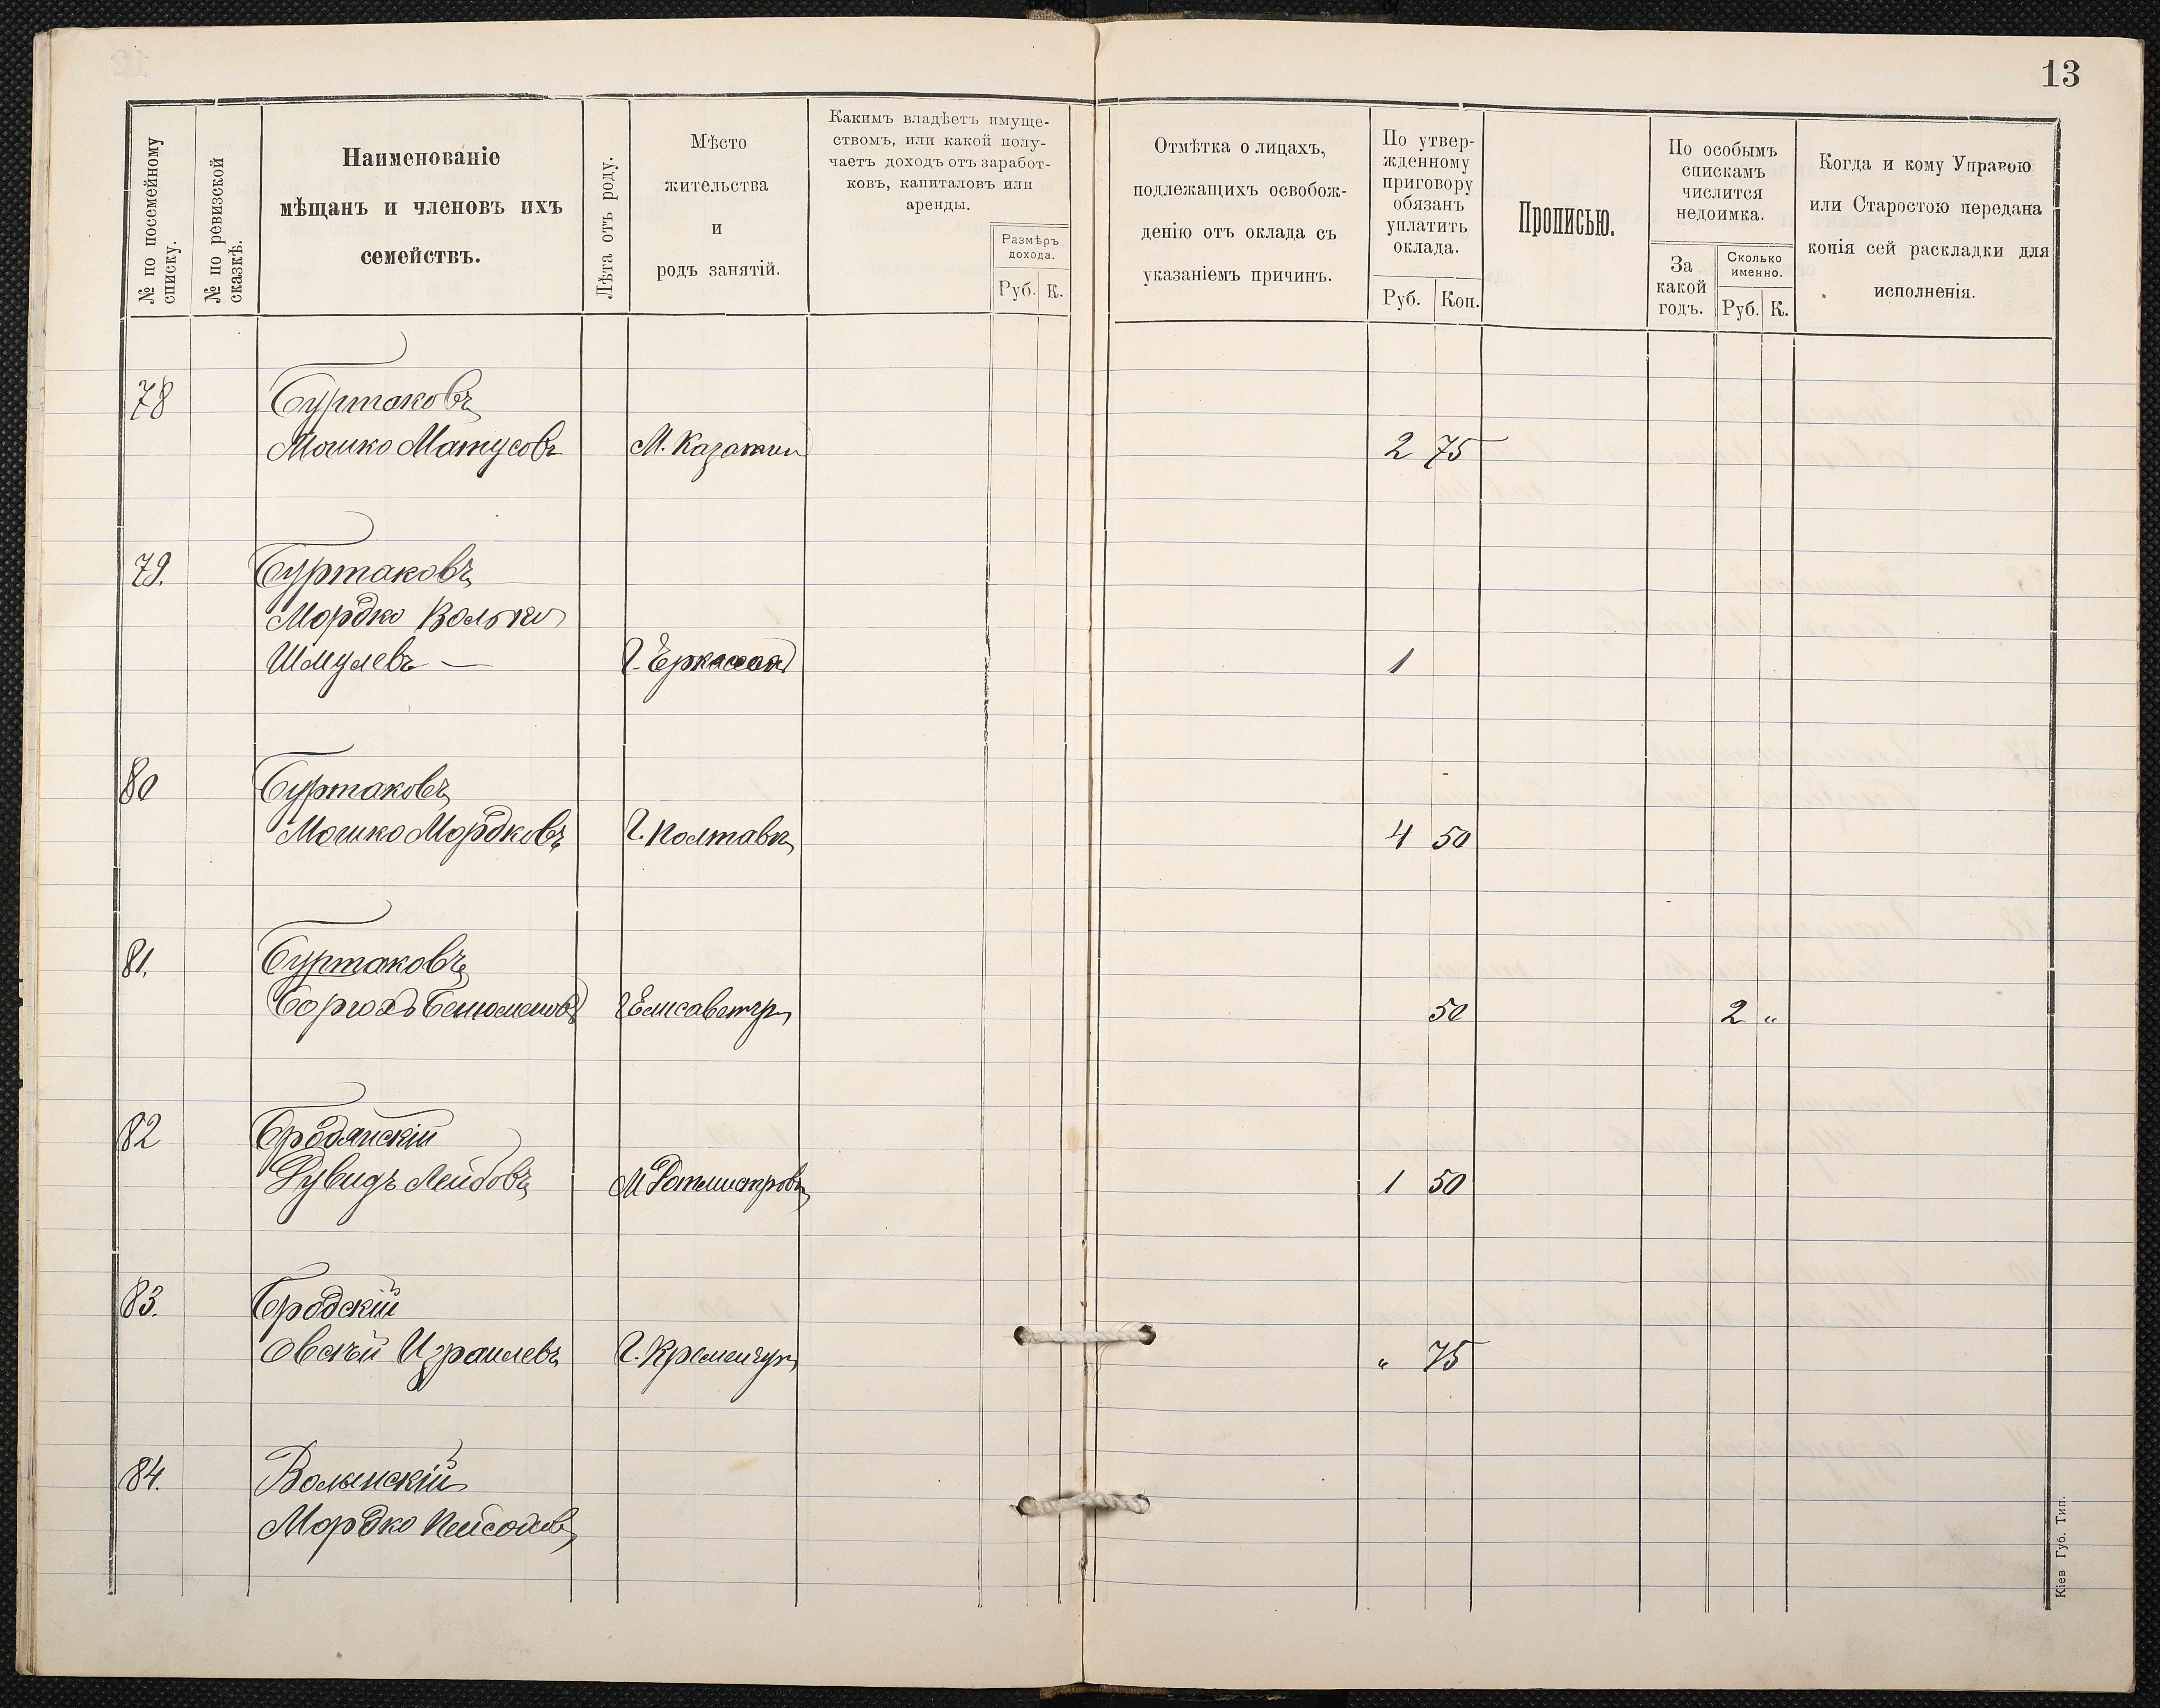 13
№ по посемейному
списку.
№ по ревизской
сказкѣ.
Наименованіе
мѣщанъ и членовъ ихъ
семействъ.
Лѣта отъ роду.
Мѣсто
жительства
и
родъ занятій.
Какимъ владѣетъ имуще-
ствомъ, или какой полу-
чаетъ доходъ отъ заработ-
ковъ, капиталовъ или
аренды.
Размѣръ
дохода.
Руб. К.
Отмѣтка о лицахъ,
подлежащихъ освобож-
денію отъ оклада съ
указаніемъ причинъ.
По утвер-
жденному
приговору
обязанъ
уплатить
оклада.
Руб. Коп.
Прописью.
По особымъ
спискамъ
числится
недоимка.
За
какой
годъ.
Сколько
именно.
Руб. К.
Когда и кому Управою
или Старостою передана
копія сей раскладки для
исполненія.
78 Буртаковъ
Мошко Матусовъ М. Казатин 2 75
79. Буртаковъ
Мордко Волько
Шмулевъ — Г. 1
80 Буртаковъ
Мошко Мордковъ Г. Полтава 4 50
81. Буртаковъ
Борохъ Г Елисаветгр 50 2 "
82 Бродянскій
Дувидъ Лейбовъ М Ротмистровк 1 50
83. Бродскій
Овсѣй Израилевъ Г. Кременчуг " 75
84. Волынскій
Мордко
Кіев Губ. Тип.